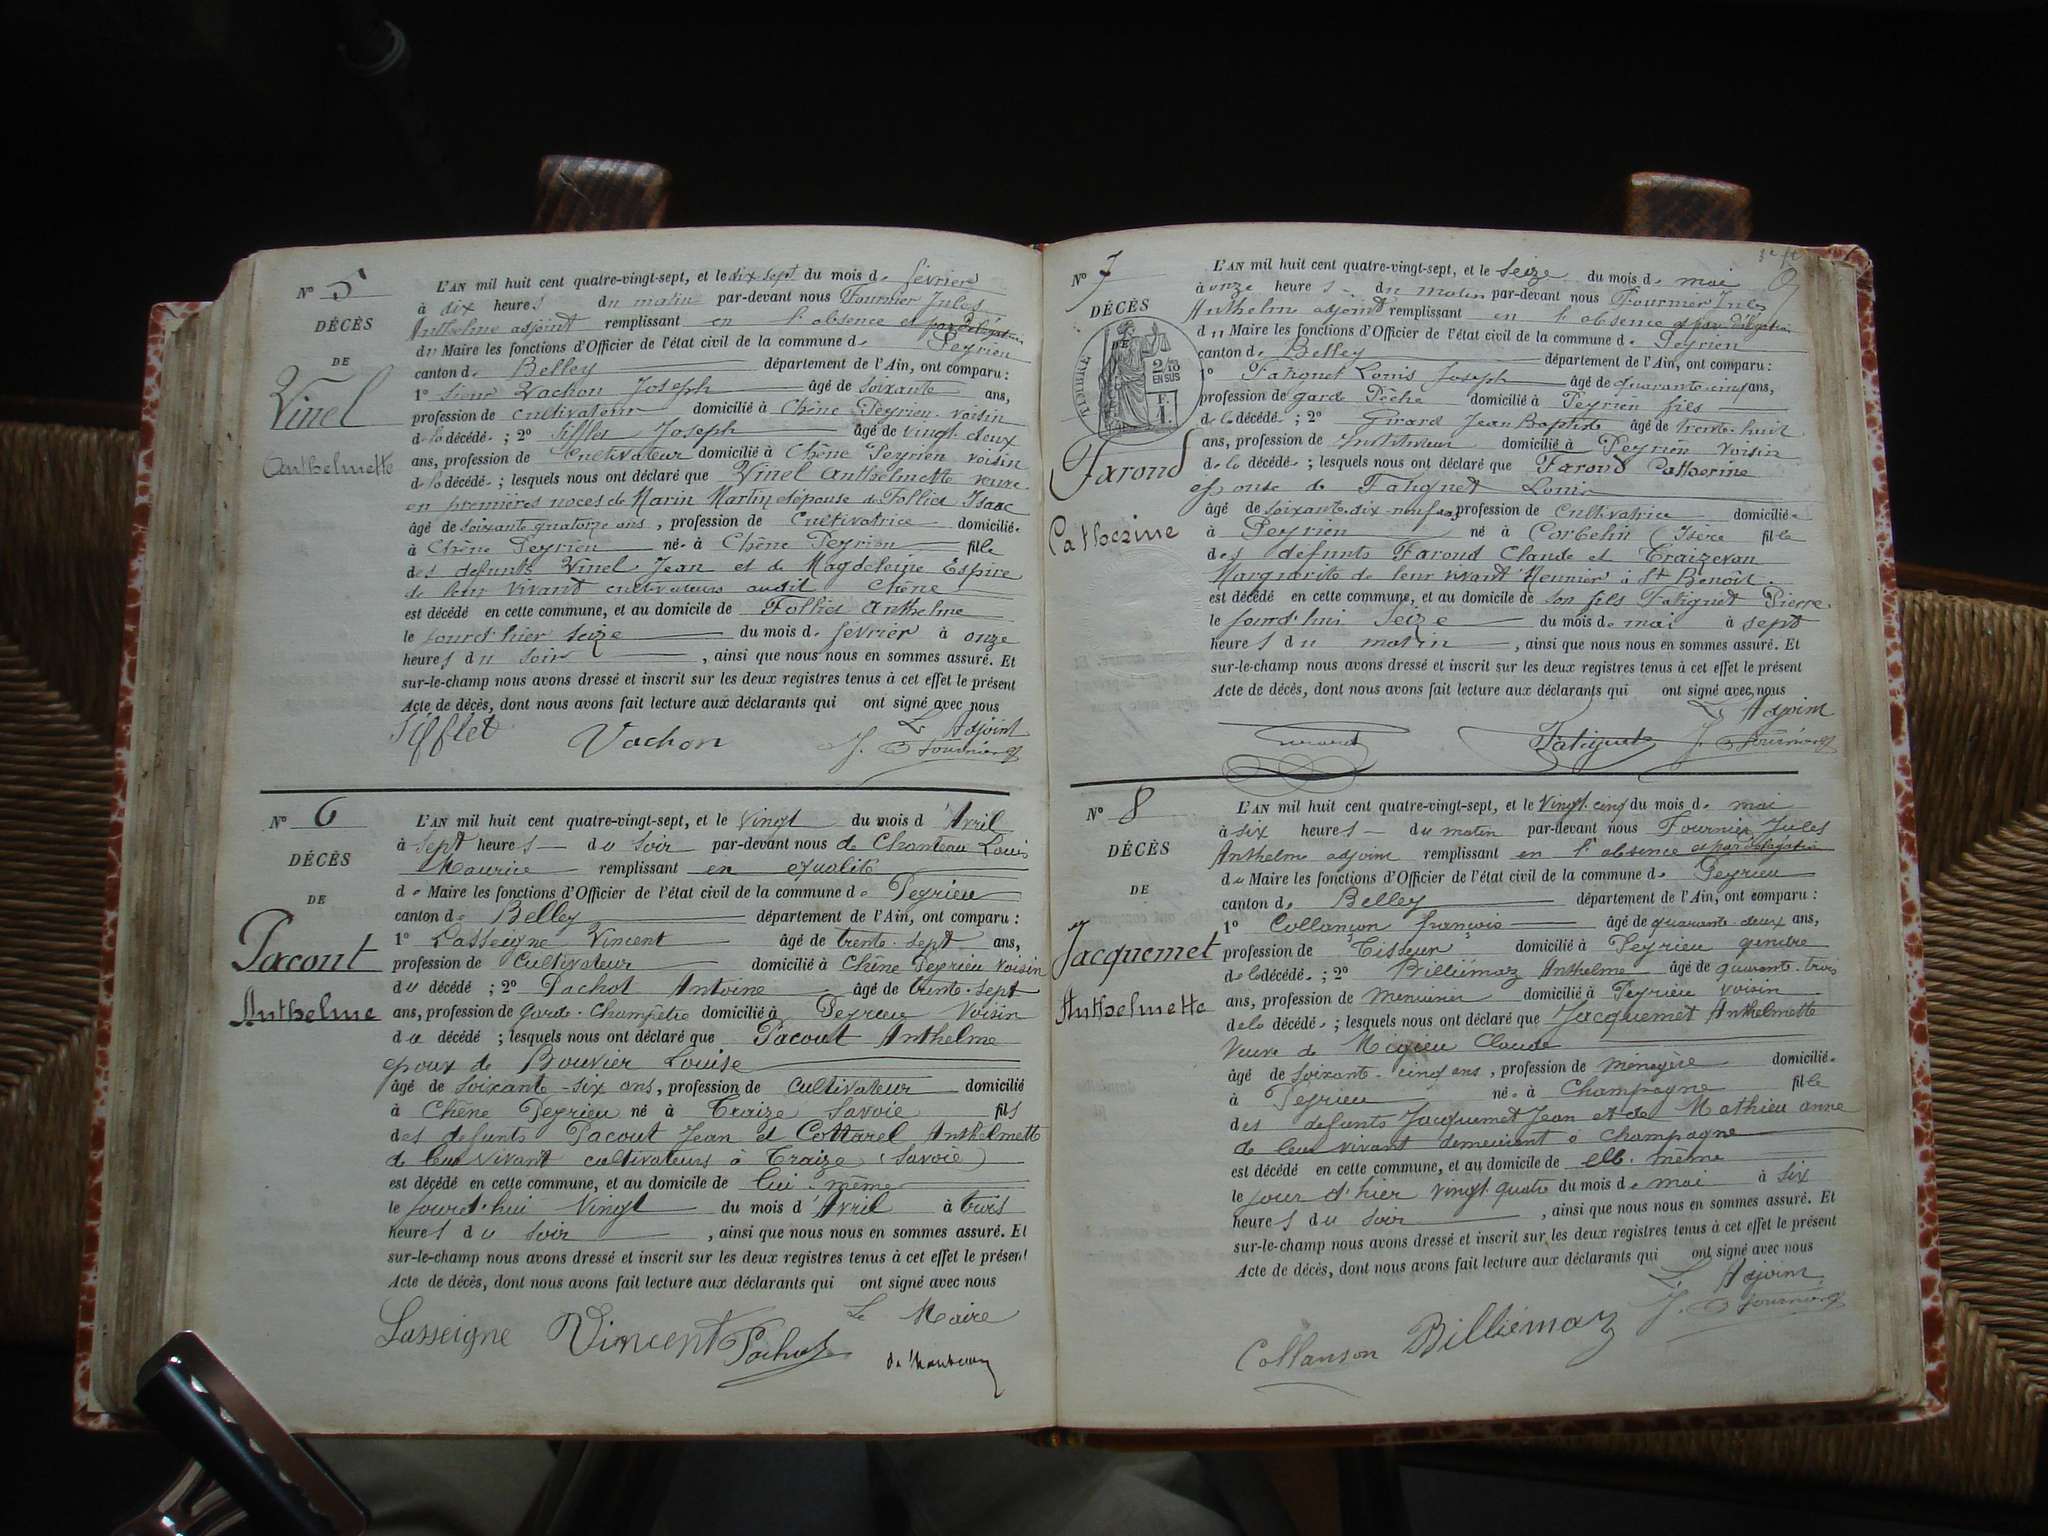 N° 5
DÉCÈS
DE
Vinel
Anthelmette
L'AN mil huit cent quatre-vingt-sept, et le dix sept du mois de février
à dix heures du matin par-devant nous Fournier Jules
Anthelme adjoint remplissant en l'absence et par délégation
du Maire les fonctions d'Officier de l'état civil de la commune de Peyrieu
canton de Belley département de l'Ain, ont comparu :
1° sieur Vachon Joseph âgé de soixante ans,
profession de cultivateur domicilié à Chêne Peyrieu voisin
de la décédée ; 2° Sifflet Joseph âgé de vingt-deux
ans, profession de Cultivateur domicilié à Chêne Peyrieu voisin
de la décédée ; lesquels nous ont déclaré que Vinel Anthelmette veuve
en premières noces de Marin Martin et épouse de Folliet Isaac
âgé de soixante quatorze ans, profession de Cultivatrice domiciliée
à Chêne Peyrieu née à Chêne Peyrieu fille
des defunts Vinel Jean et de Magdeleine Espire
de leur vivant cultivateurs audit Chêne
est décédé en cette commune, et au domicile de Folliet Anthelme
le jour d'hier seize du mois de février à onze
heures du soir, ainsi que nous nous en sommes assuré. Et
sur-le-champ nous avons dressé et inscrit sur les deux registres tenus à cet effet le présent
Acte de décès, dont nous avons fait lecture aux déclarants qui ont signé avec nous
Sifflet Vachon L'Adjoint
J. A Fournier
N° 6
DÉCÈS
DE
Pacout
Anthelme
L'AN mil huit cent quatre-vingt-sept, et le vingt du mois d'Avril
à sept heures du soir par-devant nous de Chanteau Louis
Maurice remplissant en qualité
de Maire les fonctions d'Officier de l'état civil de la commune de Peyrieu
canton de Belley département de l'Ain, ont comparu :
1° Lasseigne Vincent âgé de trente-sept ans,
profession de Cultivateur domicilié à Chêne Peyrieu voisin
du décédé ; 2° Pachot Antoine âgé de trente-sept
ans, profession de garde-Champêtre domicilié à Peyrieu Voisin
du décédé ; lesquels nous ont déclaré que Pacout Anthelme
epoux de Bouvier Louise
âgé de soixante-six ans, profession de cultivateur domicilié
à Chêne Peyrieu né à Traize Savoie fils
des defunts Pacout Jean et Cottarel Anthelmette
de leur vivant cultivateurs à Traize (Savoie)
est décédé en cette commune, et au domicile de lui-même
le jourd'hui vingt du mois d'Avril à trois
heures du soir, ainsi que nous nous en sommes assuré. Et
sur-le-champ nous avons dressé et inscrit sur les deux registres tenus à cet effet le présent
Acte de décès, dont nous avons fait lecture aux déclarants qui ont signé avec nous
Lasseigne Vincent Pachot Le Maire
de Chanteau
N° 7
DÉCÈS
TIMBRE
2/10
EN SUS
Farond
Catherine
L'AN mil huit cent quatre-vingt-sept, et le seize du mois de mai
à onze heures du matin par-devant nous Fournier Jules
Anthelme adjoint remplissant en l'absence et par délégation
du Maire les fonctions d'Officier de l'état civil de la commune de Peyrieu
canton de Belley département de l'Ain, ont comparu :
1° Fatiguet Louis Joseph âgé de quarante cinq ans,
profession de garde Pêche domicilié à Peyrieu fils
de la décédée ; 2° Girard Jean Baptiste âgé de trente-huit
ans, profession de Instituteur domicilié à Peyrieu voisin
de la décédée ; lesquels nous ont déclaré que Farond Catherine
épouse de Fatiguet Louis
âgé de soixante-dix neuf ans, profession de Cultivatrice domiciliée
à Peyrieu né à Corbelin (Isère fille
des defunts Farond Claude et Traizevan
Marguerite de leur vivant Meunier à St Benoit.
est décédé en cette commune, et au domicile de son fils Fatiguet Pierre.
le jourd'hui seize du mois de mai à sept
heures du matin, ainsi que nous nous en sommes assuré. Et
sur-le-champ nous avons dressé et inscrit sur les deux registres tenus à cet effet le présent
Acte de décès, dont nous avons fait lecture aux déclarants qui ont signé avec nous
L'Adjoint
Girard Fatiguet J. A Fournier
N° 8
DÉCÈS
DE
Jacquemet
Anthelmette
L'AN mil huit cent quatre-vingt-sept, et le vingt-cinq du mois de mai
à six heures du matin par-devant nous Fournier Jules
Anthelme adjoint remplissant en l'absence et par délégation
du Maire les fonctions d'Officier de l'état civil de la commune de Peyrieu
canton de Belley département de l'Ain, ont comparu :
1° Collançon françois âgé de quarante-deux ans,
profession de Tisseur domicilié à Peyrieu gendre
de la décédée ; 2° Billiémaz Anthelme âgé de quarante-trois
ans, profession de menuisier domicilié à Peyrieu voisin
de la décédée ; lesquels nous ont déclaré que Jacquemet Anthelmette
Veuve de Claude
âgé de soixante-cinq ans, profession de ménagère domiciliée
à Peyrieu née à Champagne fille
des defunts Jacquemet Jean et de Mathieu anne
de leur vivant demeurant à Champagne
est décédé en cette commune, et au domicile de elle-même
le jour d'hier vingt quatre du mois de mai à six
heures du soir, ainsi que nous nous en sommes assuré. Et
sur-le-champ nous avons dressé et inscrit sur les deux registres tenus à cet effet le présent
Acte de décès, dont nous avons fait lecture aux déclarants qui ont signé avec nous
L'Adjoint
Collanson Billiémaz J. A Fournier